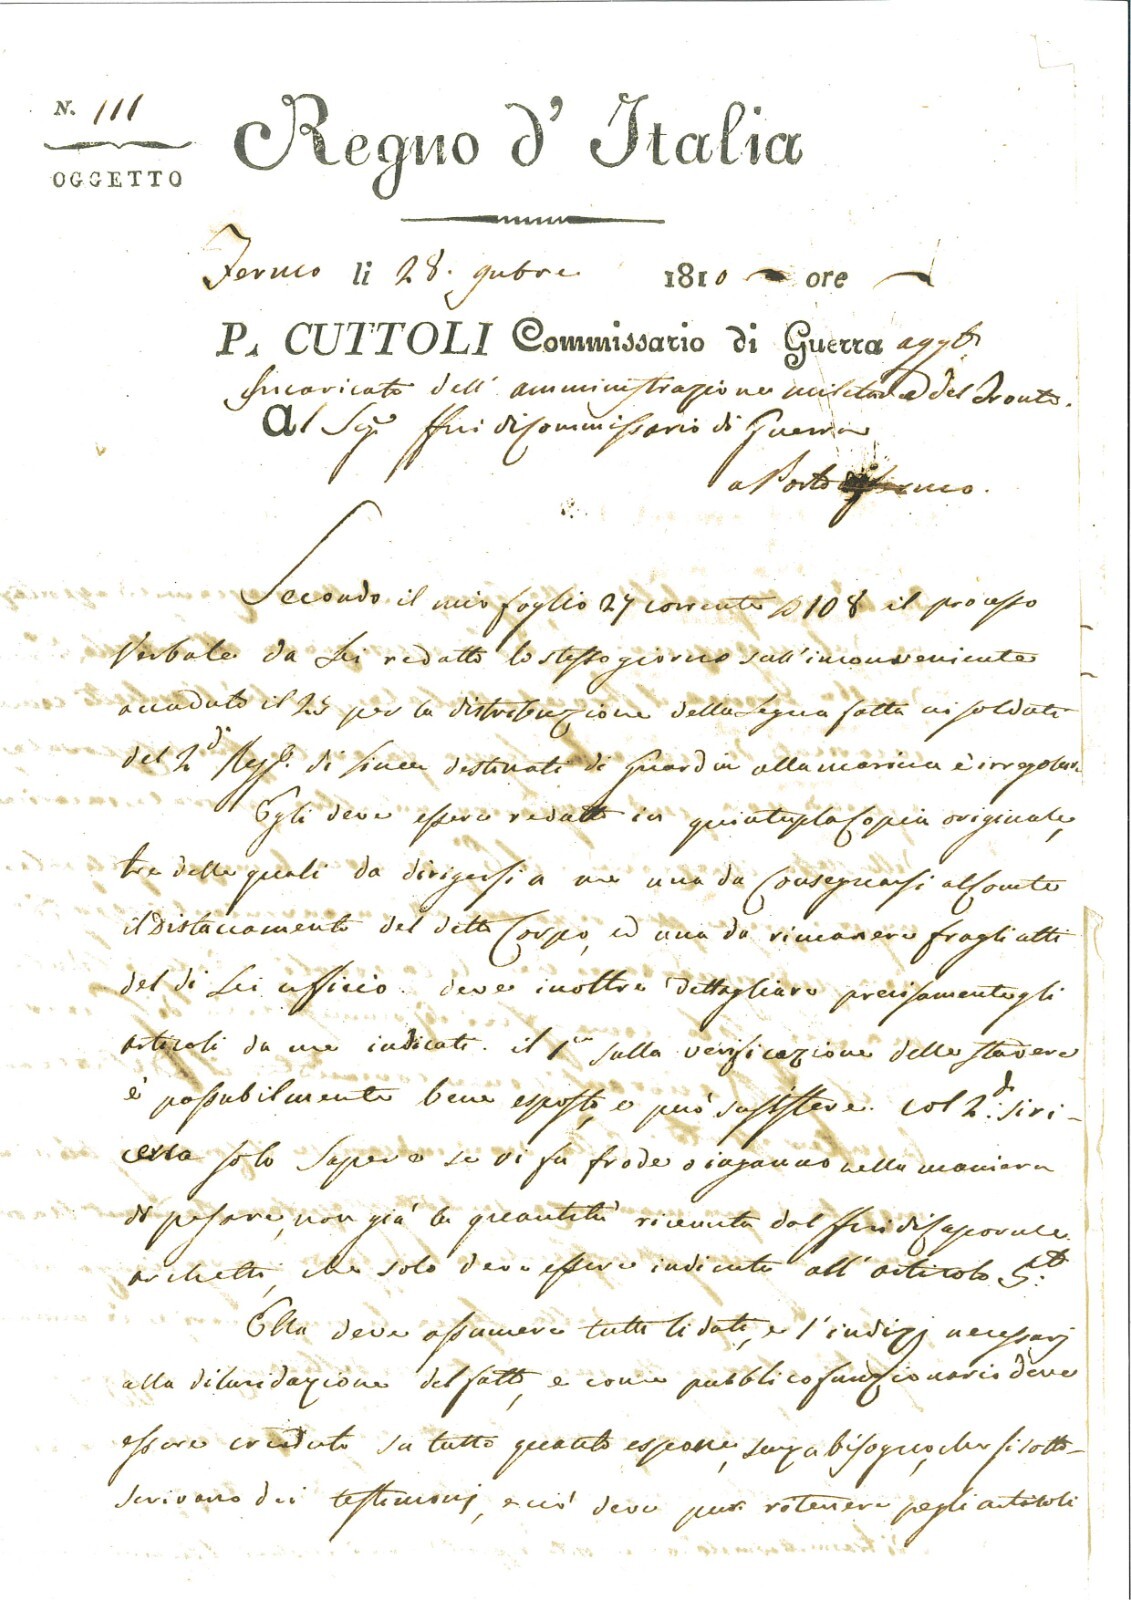 N. 111
OGGETTO
Regno d' Italia
Fermo li 28. 9mbre 1810 ore
P. CUTTOLI Commissario di Guerra aggto
Incaricato dell' amministrazione militare del Tronto.
Al Sigr ffni di Commissario di Guerra
a Porto Fermo.
Secondo il mio foglio 27 corrente N 108 il processo
Verbale da Lei redatto lo stesso giorno sull'inconveniente
accaduto il 25 per la distribuzione della legna fatta ai soldati
del 2.do Regg.to di linea destinati di Guardia alla marina è irregolare
Egli deve essere redatto in quintupla Copia originale,
tre delle quali da dirigersi a me una da Consegnarsi al Comte
il Distaccamento del detto Corpo, ed una da rimanere fragli atti
del di Lei ufficio. deve inoltre dettagliare precisamente gli
articoli da me indicati. il 1mo sulla verificazione delle stadere
è passabilmente bene esposto, e può sussistere. Col 2.do si ri-
cerca solo sapere se vi fu frode o inganno nella maniera
di pesare, non già la quantità ricevuta dal ffni di Caporale
Archetti, che solo deve essere indicata all' articolo 5.to
Ella deve assumere tutti li dati, e l'indizj necessarj
alla dilucidazione del fatto, e come pubblico funzionario deve
essere creduto su tutto quanto espone, senza bisogno, che si sotto-
scrivano dei testimonj, e ciò deve pur ritenere pegli articoli